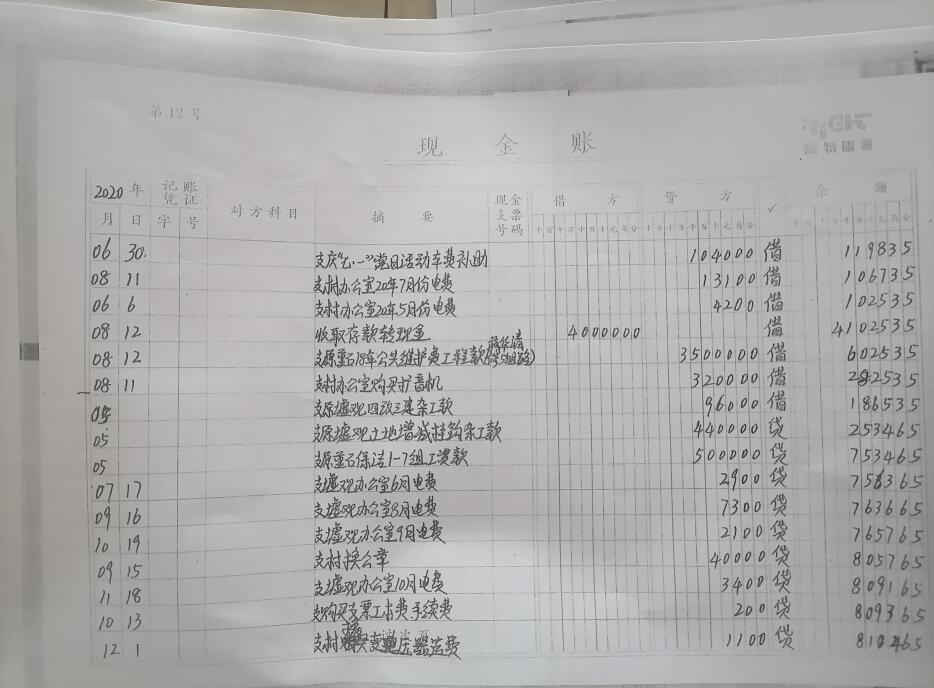 第 12 号
现 金 账
2020 年 记账凭证 对方科目 摘 要 现金支票号码 借 方 贷 方 ✓ 余 额
月 日 字 号 千百十万千百十元角分 千百十万千百十元角分 千百十万千百十元角分
06 30 支庆"七.一"党日活动车费补助 104000 借 119835
08 11 支村办公室20年7月份电费 13100 借 106735
06 6 支村办公室20年5月份电费 4200 借 102535
08 12 收取存款转现金 4000000 借 4102535
08 12 支原重石18年公共维护费工程款 3500000 借 602535
08 11 支村办公室购买扩音机 320000 借 282535
05 支原墟观四改三建杂工款 96000 借 186535
05 支原墟观土地增减挂钩杂工款 440000 贷 253465
05 支原重石保洁1-7组工资款 500000 贷 753465
07 17 支墟观办公室6月电费 2900 贷 756365
09 16 支墟观办公室8月电费 7300 贷 763665
10 19 支墟观办公室9月电费 2100 贷 765765
09 15 支村换公章 40000 贷 805765
11 18 支墟观办公室10月电费 3400 贷 809165
10 13 支购买支票工本费手续费 200 贷 809365
12 1 支村 变压器 费 1100 贷 810465